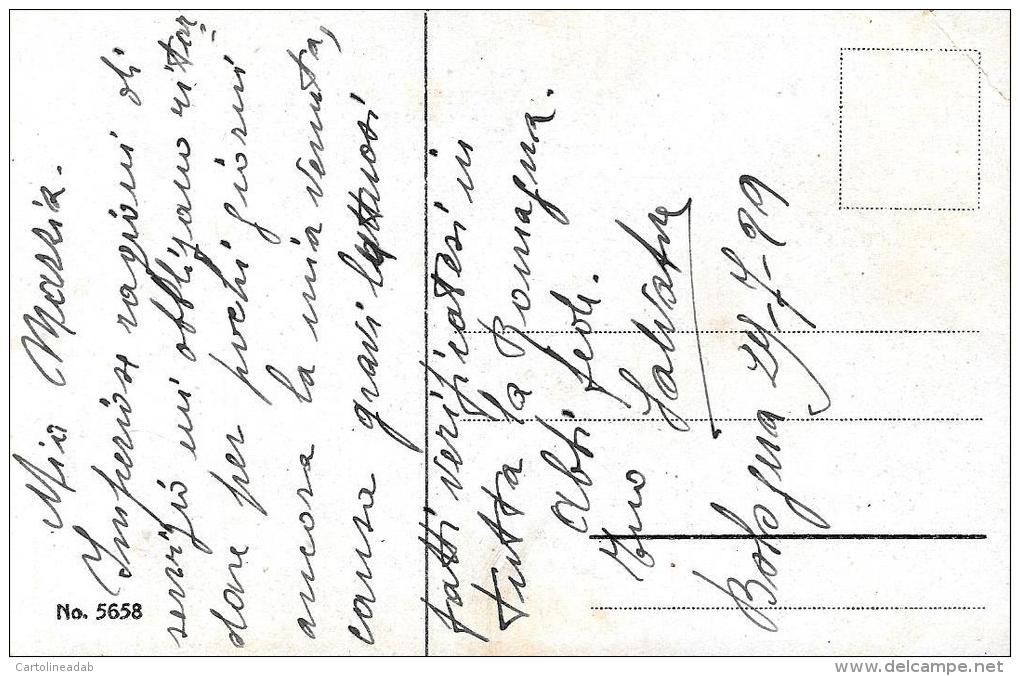 Mio Maria.
Imperiose ragioni di
servizio mi obbligano ritar=
dare per pochi giorni
ancora la mia venuta,
causa gravi luttuosi
fatti verificatesi in
tutta la Romagna.
Abbi fede.
Tuo Salvatore
Bologna 29-7-
No. 5658
Cartolineadab
www.delcampe.net